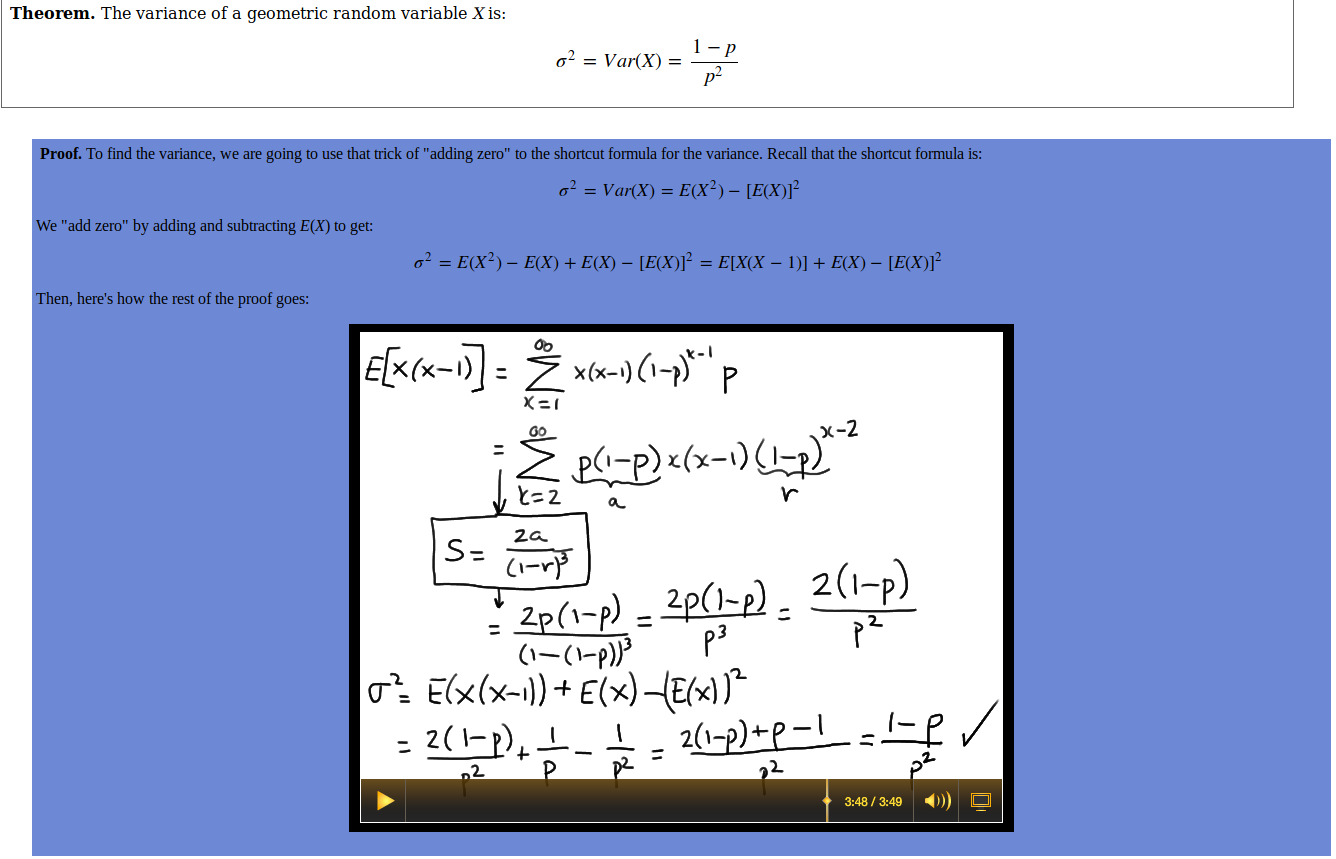 Theorem. The variance of a geometric random variable X is:
σ² = Var(X) = (1 − p) / p²
Proof. To find the variance, we are going to use that trick of "adding zero" to the shortcut formula for the variance. Recall that the shortcut formula is:
σ² = Var(X) = E(X²) − [E(X)]²
We "add zero" by adding and subtracting E(X) to get:
σ² = E(X²) − E(X) + E(X) − [E(X)]² = E[X(X − 1)] + E(X) − [E(X)]²
Then, here's how the rest of the proof goes:
E[x(x−1)] = ∑_{x=1}^{∞} x(x−1)(1−p)^{x−1} p
= ∑_{x=2}^{∞} p(1−p) x(x−1)(1−p)^{x−2}
a r
S = 2a / (1−r)³
= 2p(1−p) / (1−(1−p))³ = 2p(1−p) / p³ = 2(1−p) / p²
σ² = E(x(x−1)) + E(x) − (E(x))²
= 2(1−p) / p² + 1 / p − 1 / p² = (2(1−p)+p−1) / p² = (1−p) / p² ✓
3:48 / 3:49